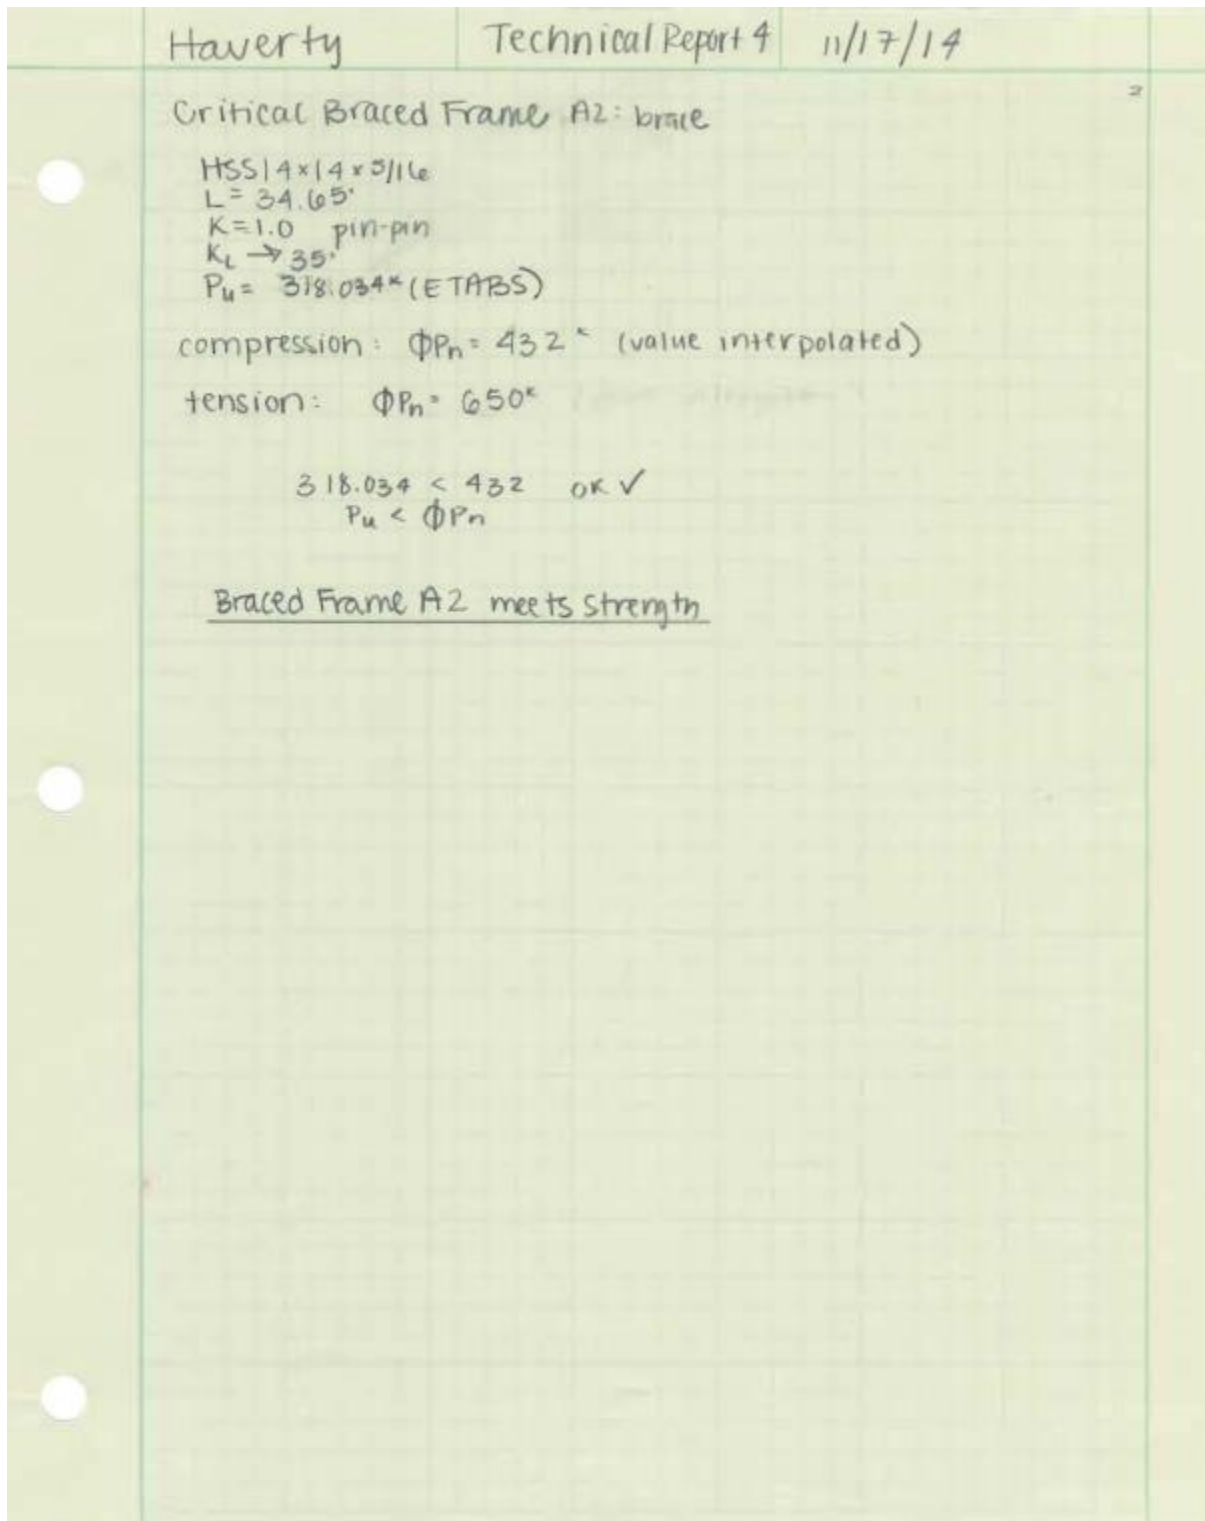 Haverty Technical Report 4 11/17/14
2
Critical Braced Frame A2: brace
HSS14x14x5/16
L = 34.65'
K=1.0 pin-pin
KL → 35'
Pu = 318.034k (ETABS)
compression: ΦPn = 432k (value interpolated)
tension: ΦPn = 650k
318.034 < 432 OK ✓
Pu < ΦPn
Braced Frame A2 meets Strength